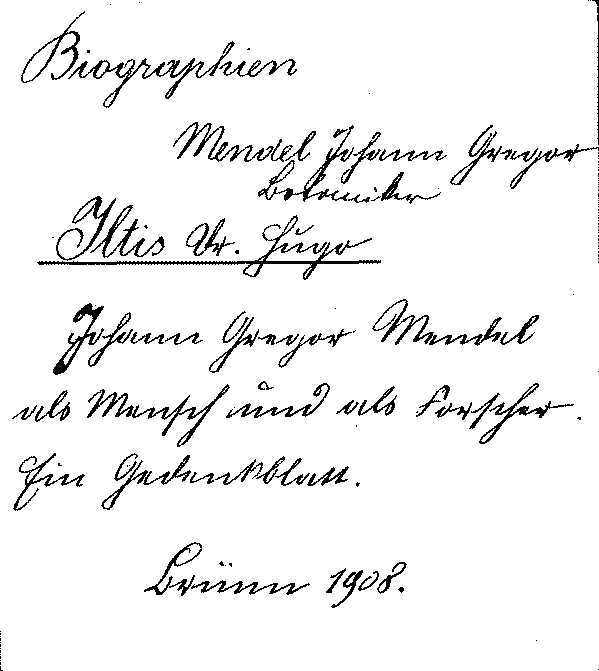 Biographien
Mendel Johann Gregor
Botaniker
Iltis Dr. Hugo
Johann Gregor Mendel
als Mensch und als Forscher.
Ein Gedenkblatt.
Brünn 1908.